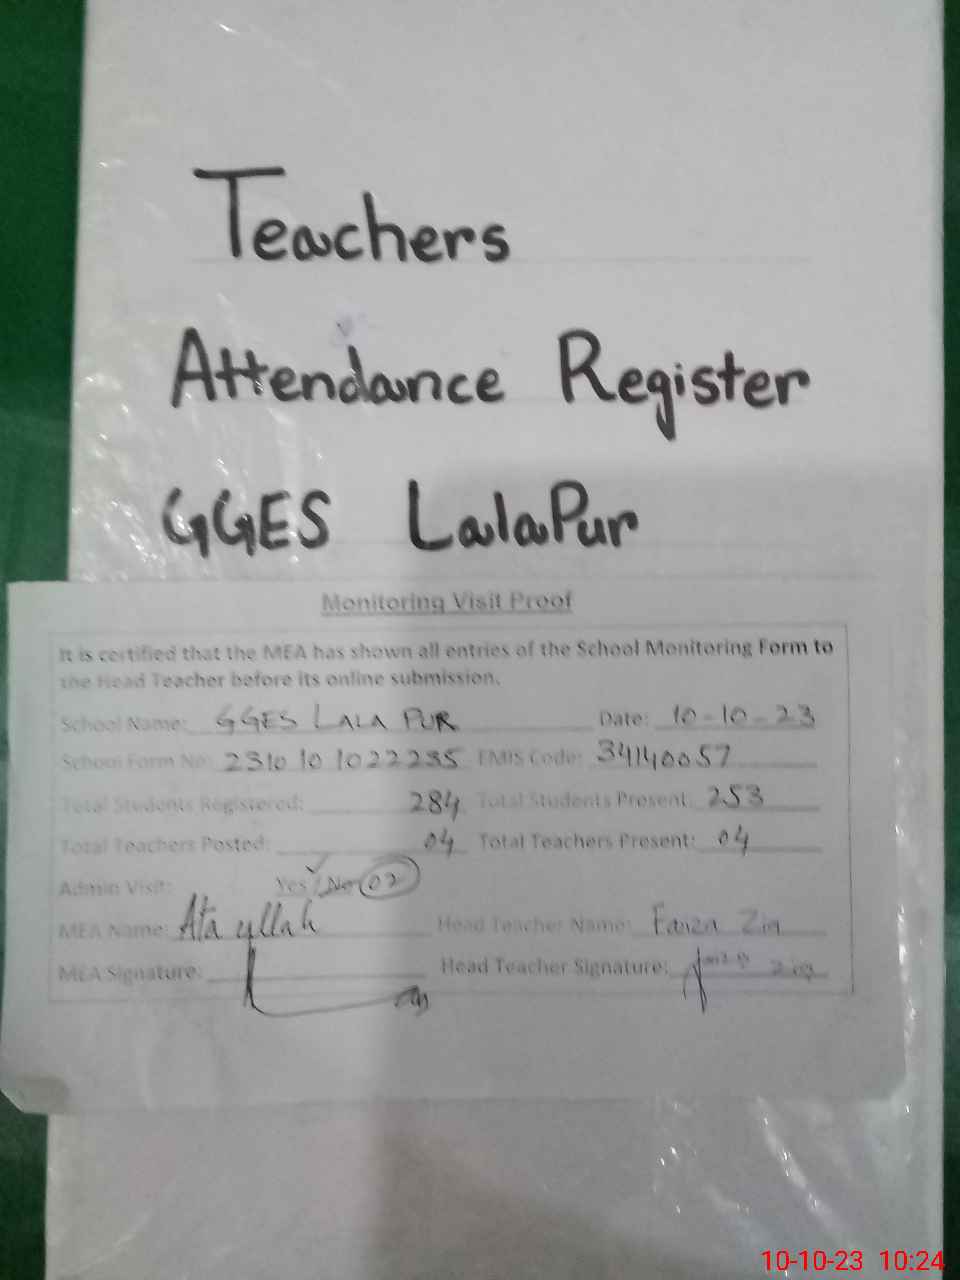 Teachers
Attendance Register
GGES LalaPur
Monitoring Visit Proof
It is certified that the MEA has shown all entries of the School Monitoring Form to
the Head Teacher before its online submission.
School Name: GGES LALA PUR Date: 10-10-23
School Form No: 2310 10 1022235 EMIS Code: 34140057
Total Students Registered: 284 Total Students Present: 253
Total Teachers Posted: 04 Total Teachers Present: 04
Admin Visit: Yes/No 02
MEA Name: Ata ullah Head Teacher Name: Faiza Zia
MEA Signature: Head Teacher Signature: Faiza Zia
10-10-23 10:24